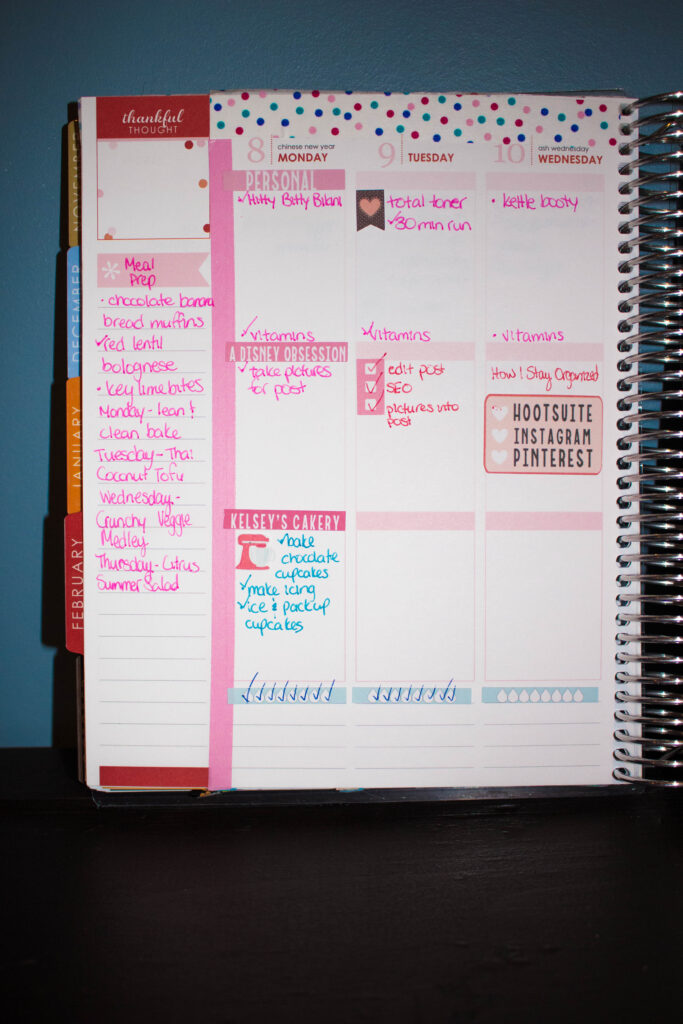 NOVEMBER
DECEMBER
JANUARY
FEBRUARY
thankful
THOUGHT
Meal
Prep
• chocolate banana
bread muffins
✓red lentil
bolognese
• key lime bites
Monday - lean &
clean bake
Tuesday - Thai
Coconut Tofu
Wednesday -
Crunchy Veggie
Medley
Thursday - Citrus
Summer Salad
8 chinese new year
MONDAY
PERSONAL
✓Hitty Bitty Bikini
✓vitamins
A DISNEY OBSESSION
✓take pictures
for post
KELSEY'S CAKERY
✓bake
chocolate
cupcakes
✓make icing
✓ice & packup
cupcakes
9 TUESDAY
total toner
✓30 min run
✓vitamins
✓edit post
✓SEO
✓pictures into
post
10 ash wednesday
WEDNESDAY
• kettle booty
• vitamins
How I Stay Organized
HOOTSUITE
INSTAGRAM
PINTEREST